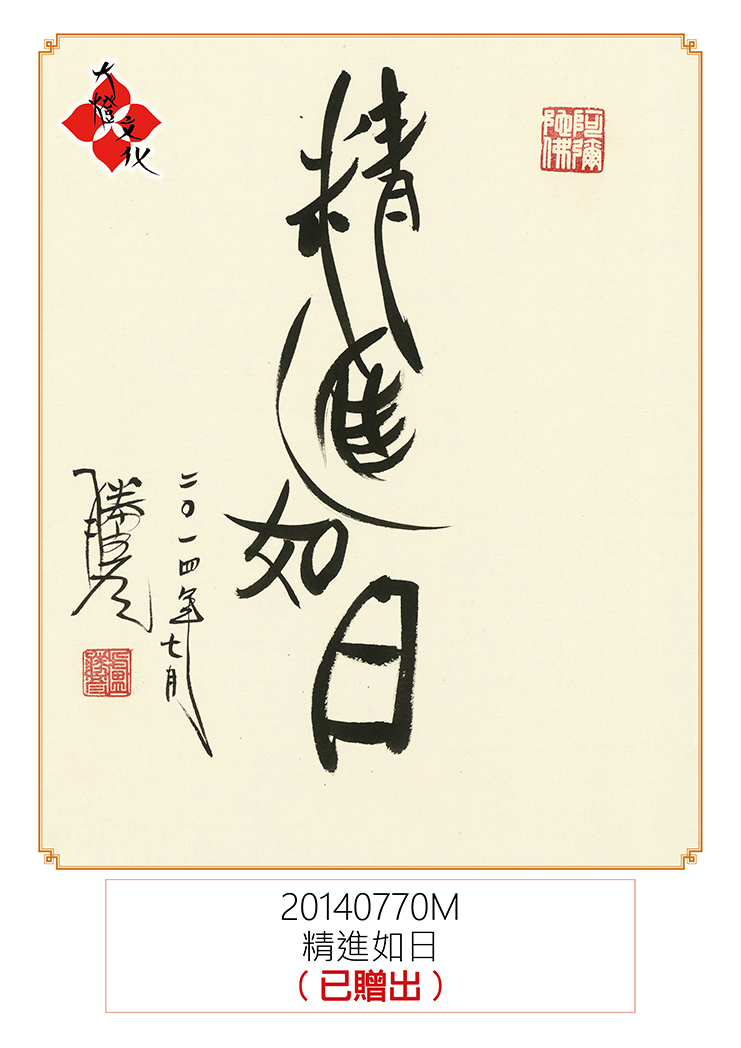 大燈文化
阿彌陀佛
精進如日
二〇一四年七月
勝彥
盧勝彥
20140770M
精進如日
（已贈出）